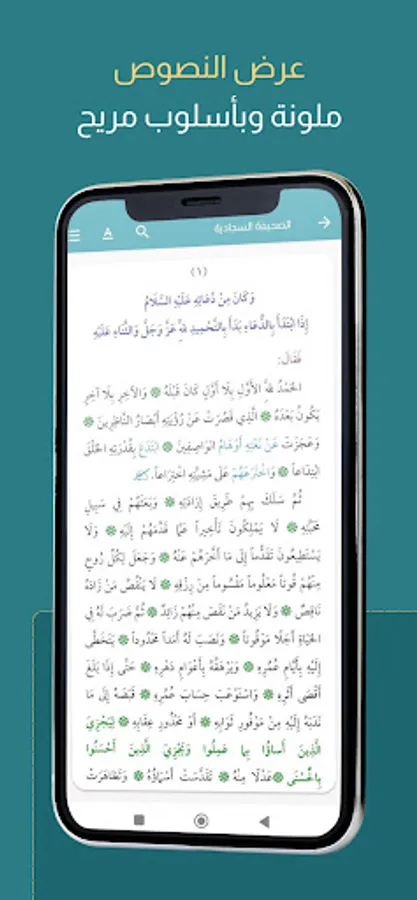 عرض النصوص
ملونة وبأسلوب مريح
الصحيفة السجادية
A
(١)
وَكَانَ مِنْ دُعَائِهِ عَلَيْهِ السَّلَامُ
إِذَا ابْتَدَأَ بِالدُّعَاءِ بَدَأَ بِالتَّحْمِيدِ لِلَّهِ عَزَّ وَجَلَّ وَالثَّنَاءِ عَلَيْهِ
فَقَالَ:
الْحَمْدُ لِلَّهِ الْأَوَّلِ بِلَا أَوَّلٍ كَانَ قَبْلَهُ ❁ وَالْآخِرِ بِلَا آخِرٍ
يَكُونُ بَعْدَهُ ❁ الَّذِي قَصُرَتْ عَنْ رُؤْيَتِهِ أَبْصَارُ النَّاظِرِينَ ❁
وَعَجَزَتْ عَنْ نَعْتِهِ أَوْهَامُ الْوَاصِفِينَ ❁ ابْتَدَعَ بِقُدْرَتِهِ الْخَلْقَ
ابْتِدَاعاً ❁ وَاخْتَرَعَهُمْ عَلَى مَشِيَّتِهِ اخْتِرَاعاً.
ثُمَّ سَلَكَ بِهِمْ طَرِيقَ إِرَادَتِهِ ❁ وَبَعَثَهُمْ فِي سَبِيلِ
مَحَبَّتِهِ ❁ لَا يَمْلِكُونَ تَأْخِيراً عَمَّا قَدَّمَهُمْ إِلَيْهِ ❁ وَلَا
يَسْتَطِيعُونَ تَقَدُّماً إِلَى مَا أَخَّرَهُمْ عَنْهُ ❁ وَجَعَلَ لِكُلِّ رُوحٍ
مِنْهُمْ قُوتاً مَعْلُوماً مَقْسُوماً مِنْ رِزْقِهِ ❁ لَا يَنْقُصُ مَنْ زَادَهُ
نَاقِصٌ ❁ وَلَا يَزِيدُ مَنْ نَقَصَ مِنْهُمْ زَائِدٌ ❁ ثُمَّ ضَرَبَ لَهُ فِي
الْحَيَاةِ أَجَلًا مَوْقُوتاً ❁ وَنَصَبَ لَهُ أَمَداً مَحْدُوداً ❁ يَتَخَطَّى
إِلَيْهِ بِأَيَّامِ عُمُرِهِ ❁ وَيَرْهَقُهُ بِأَعْوَامِ دَهْرِهِ ❁ حَتَّى إِذَا بَلَغَ
أَقْصَى أَثَرِهِ ❁ وَاسْتَوْعَبَ حِسَابَ عُمُرِهِ ❁ قَبَضَهُ إِلَى مَا
نَدَبَهُ إِلَيْهِ مِنْ مَوْفُورِ ثَوَابِهِ ❁ أَوْ مَحْذُورِ عِقَابِهِ ❁ لِيَجْزِيَ
الَّذِينَ أَسَاؤُا بِمَا عَمِلُوا وَيَجْزِيَ الَّذِينَ أَحْسَنُوا
بِالْحُسْنَى ❁ عَدْلًا مِنْهُ ❁ تَقَدَّسَتْ أَسْمَاؤُهُ ❁ وَتَظَاهَرَتْ